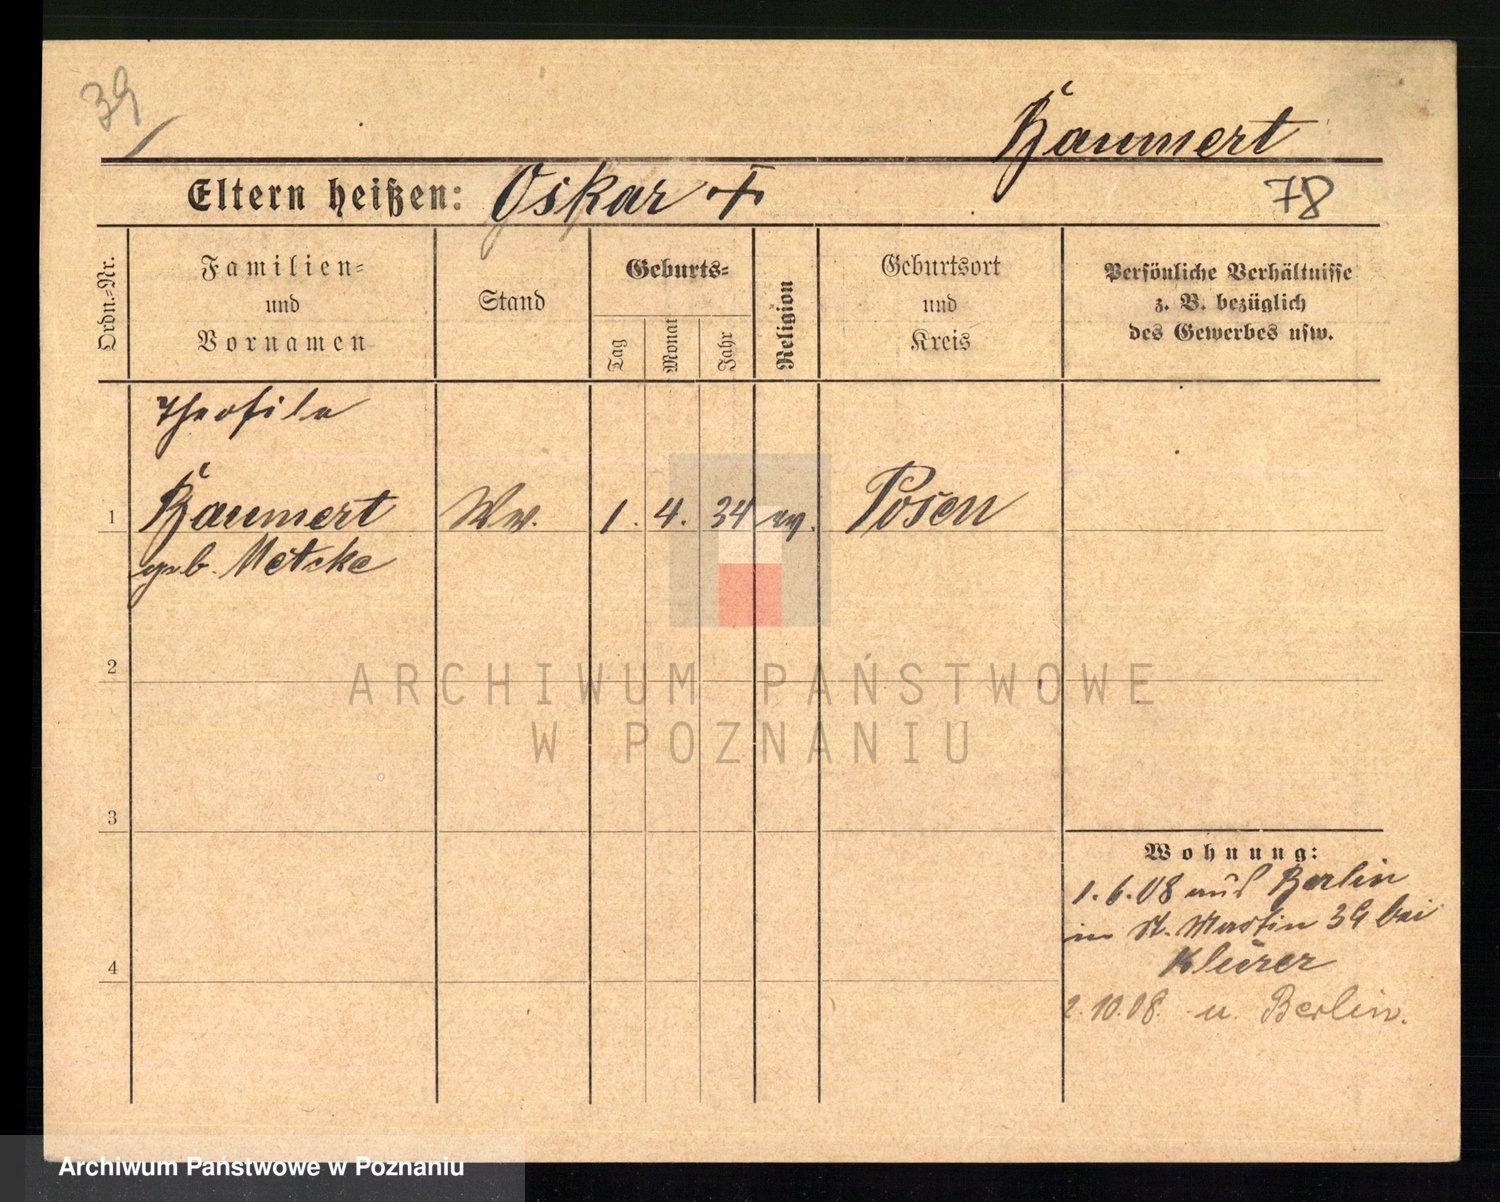 39
Baumert
Eltern heißen: Oskar +
78
Ordn.-Nr.
Familien-
und
Vornamen
Stand
Geburts-
Tag
Monat
Jahr
Religion
Geburtsort
und
Kreis
Persönliche Verhältnisse
z. B. bezüglich
des Gewerbes usw.
Theofila
1 Baumert Ww. 1. 4. 34 ev. Posen
geb. Metcke
2
ARCHIWUM PAŃSTWOWE
W POZNANIU
3
Wohnung:
1.6.08 aus Berlin
in St. Martin 39 bei
4
2.10.08. n. Berlin.
Archiwum Państwowe w Poznaniu